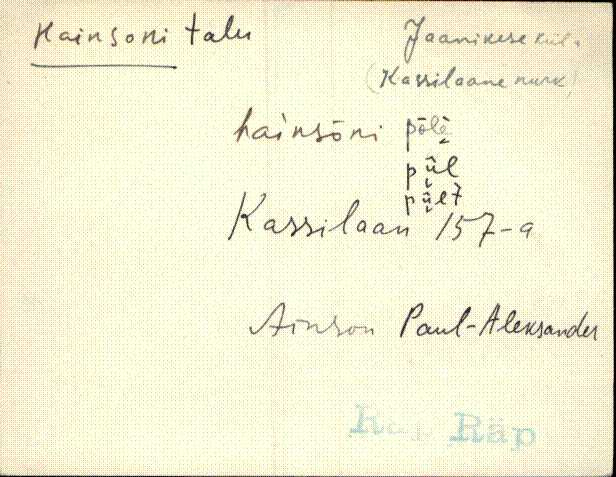 Hainsoni talu
Jaanikese kül.
(Kassilaane nurk)
hainsōni pōlè
pǖl
pǖlt
Kassilaan 157-a
Ainson Paul-Aleksander
Räp